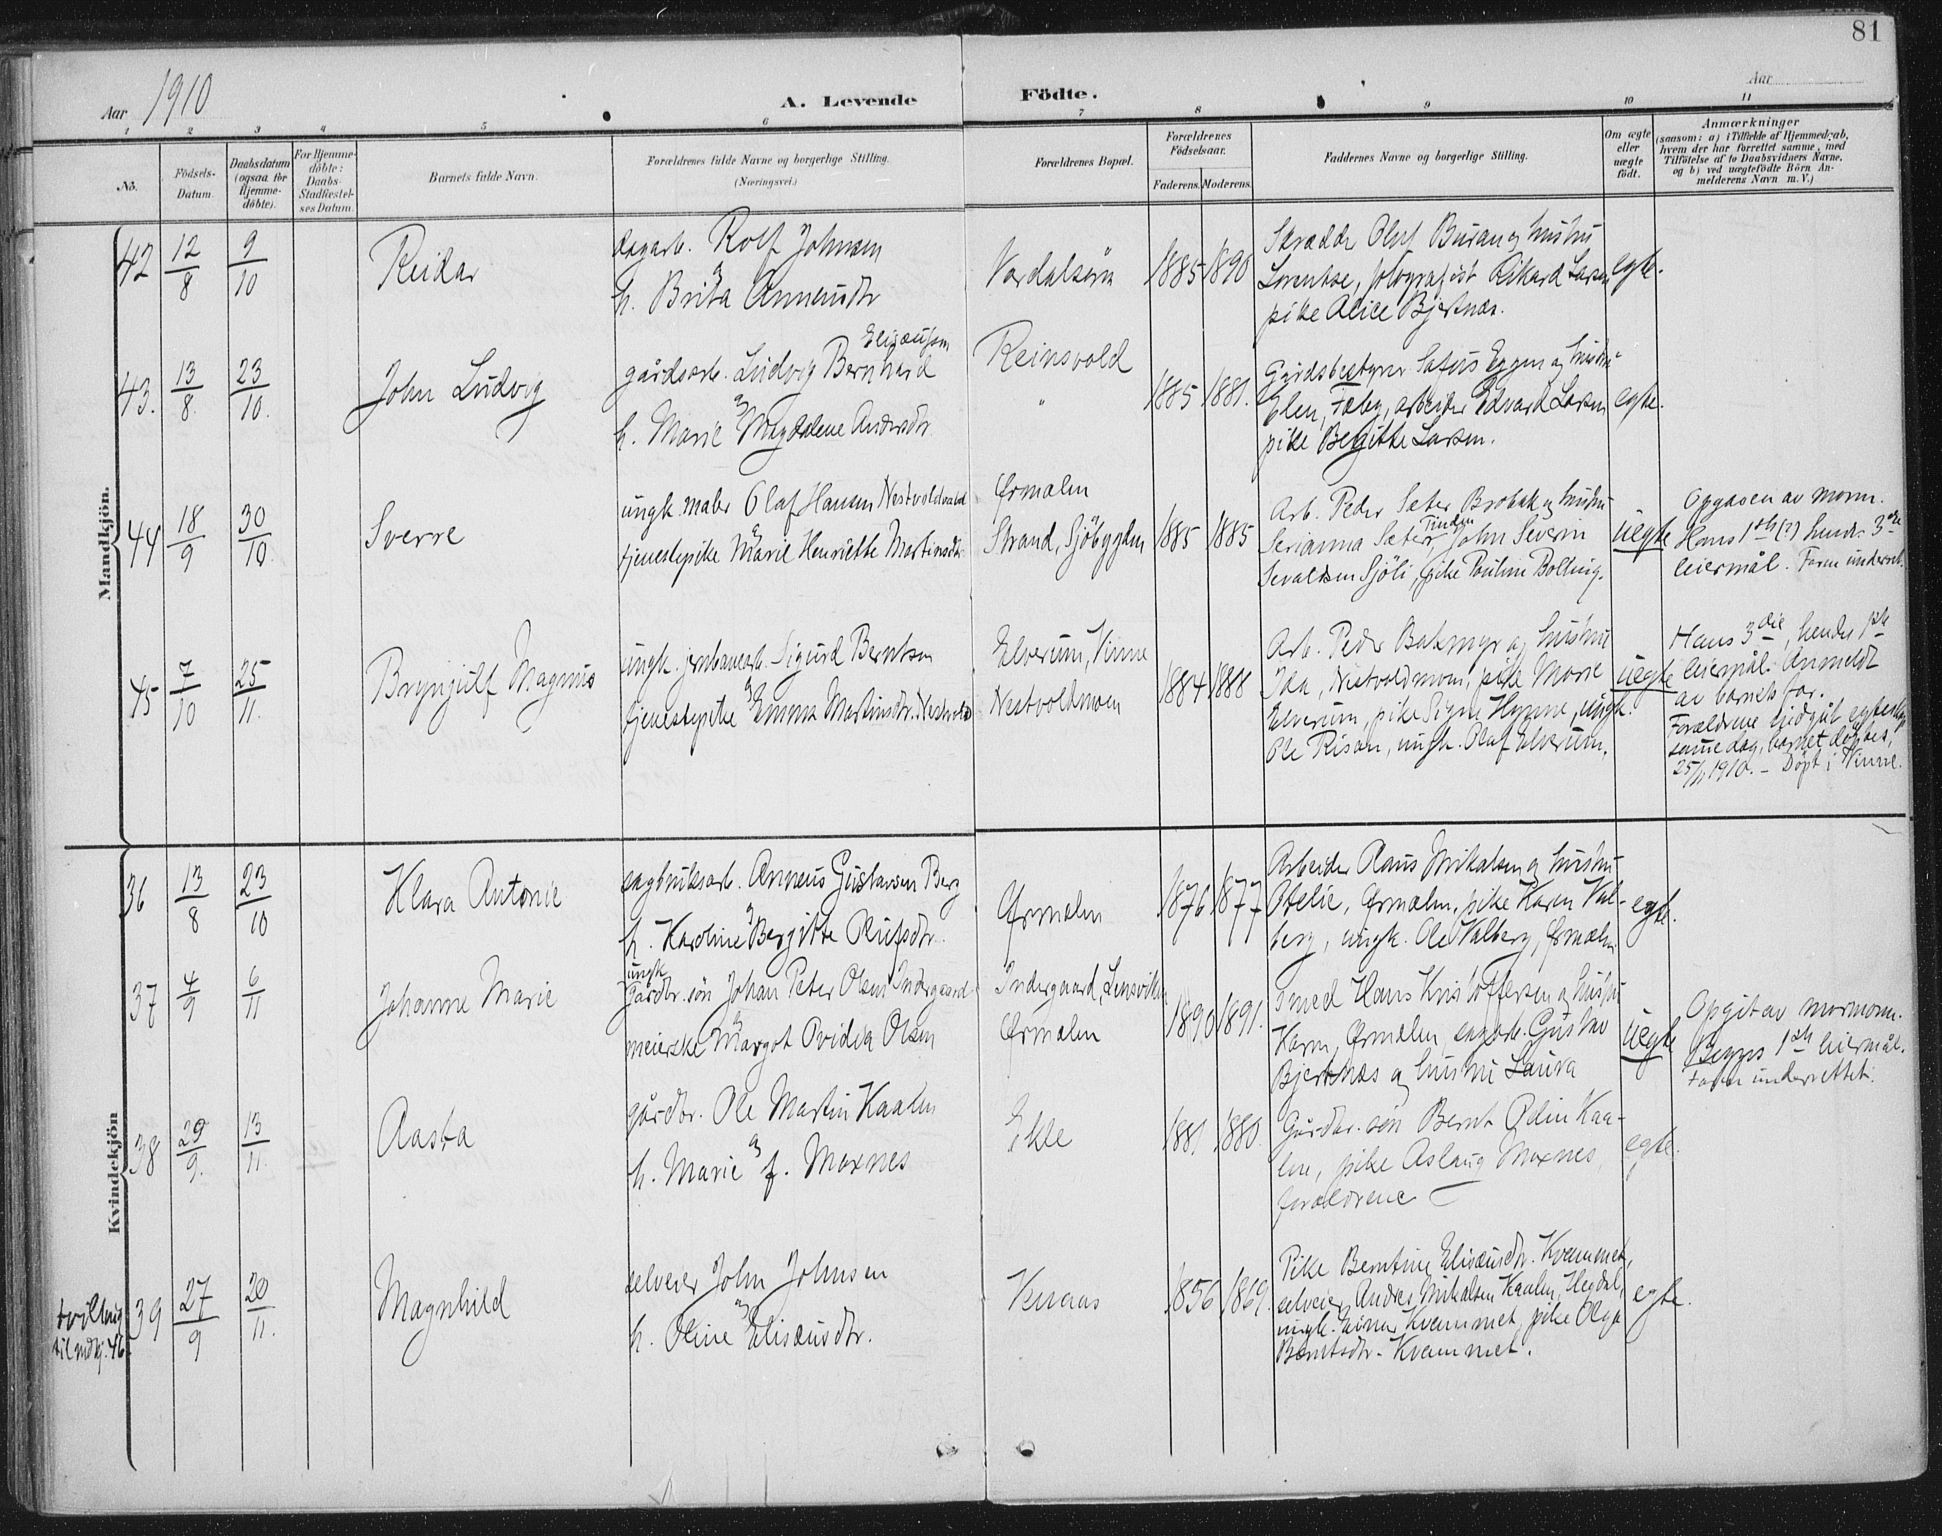 81
Aar 1910
A. Levende Födte.
Aar
1 2 3 4 5 6 7 8 9 10 11
No.
Födsels-Datum.
Daabsdatum (ogsaa for Hjemme-döbte).
For Hjemme-döbte: Daabs Stadfæstel-ses Datum.
Barnets fulde Navn.
Forældrenes fulde Navne og borgerlige Stilling. (Næringsvei.)
Forældrenes Bopæl.
Forældrenes Födselsaar.
Faderens. Moderens.
Faddernes Navne og borgerlige Stilling.
Om ægte eller uægte födt.
Anmærkninger
(saasom: a) i Tilfælde af Hjemmedaab, hvem der har forrettet samme, med Tilföielse af to Daabsvidners Navne, og b) ved uægtefödte Börn An-melderens Navn m. V.)
Mandkjön.
42 12/8 9/10 Reidar
dagarb. Rolf Johnsen
og
h. Brita Anneusdtr
Værdalsøra 1885 1890
Skrædder Oluf Buran og hustru
Lorentse, fotografist Rikard Larsen
pike Alice Bjertnæs.
egte.
43. 13/8 23/10. John Ludvig
Elisæusen
gårdsarb. Ludvig Bernhard
og
h. Marie Magdalene Andersdtr
Reinsvold
" 1885 1881.
Gårdsbestyrer Eggen og hustru
Elen, Fæby, arbeider Edvard Larsen
pike Begitte Larsen.
egte.
44 18/9 30/10. Sverre
ungk. maler Olaf Hansen Nestvoldvald
og
tjenestepike Marie Henriette Martinsdtr.
Ørmelen
Strand, Sjöbygden 1885 1885
Arb. Peder Sæter Brobak og hustru
Tinden
Serianna Sæter, John Severin
Sevaldsen Sjöli, pike Pauline Bolling.
uegte
Opgaven av morm.
Hans 1ste (?) hendes 3die
leiermål. Faren underret.
45 7/10 25/11. Brynjulf Magnus
ungk. jernbanearb. Sigurd Berntsen
og
tjenestepike Emma Martinsdtr. Nestvold
Elverum, Vinne
Nestvoldmoen 1884 1888
Arb. Peder Bakmyr og hustru
Ida, Nestvoldmoen, pike Marie
Elverum, pike Signe Hynne, ungk.
Ole Risan, ungk. Olaf Elverum.
uegte
Hans 3die, hendes 1ste
leiermål. Anmeldt
av barnets far.
Forældrene indgik egteskap
samme dag, barnet döptes,
25/11 1910. – Döpt i Vinne.
Kvindekjön
36 13/8 23/10 Klara Antonie
sagbruksarb. Anneus Gustavsen Berg
og
h. Karoline Bergitte Olufsdtr.
Ørmelen 1876 1877
Arbeider Claus Mikalsen og hustru
Otelie, Ørmelen, pike Karen Val-
berg, ungk. Ole Valberg, Ørmelen
egte.
37 4/9 6/11 Johanne Marie
ungk.
Gårdbr. sön Johan Peter Olsen Indergaard
og
meierske Margot Ovidia Olsen
Indergaard, Lensviken
Ørmelen 1890 1891.
Smed Hans Kristoffersen og hustru
Karen, Ørmelen, sagarb. Gustav
Bjertnæs og hustru Laura
uegte
Opgit av mormoren.
Begges 1ste leiermål.
Faren underrettet.
38 29/9. 13/11. Aasta
gårdbr. Ole Martin Kaalen
og
h. Marie f. Moxnes
Ekle 1881 1880.
Gårdbr. sön Bernt Odin Kaa-
len, pike Aslaug Moxnes,
forældrene
egte.
tvilling
til mdkj. 46.
39 27/9 20/11. Magnhild
selveier John Johnsen
og
h. Oline Elisæusdtr.
1856 1869.
Pike Berntine Elisæusdtr. Kvammet,
selveier Andreas Mikalsen Kaalen, Hegdal,
ungk. Einar Kvammet, pike Olga
Berntsdtr. Kvammet.
egte.